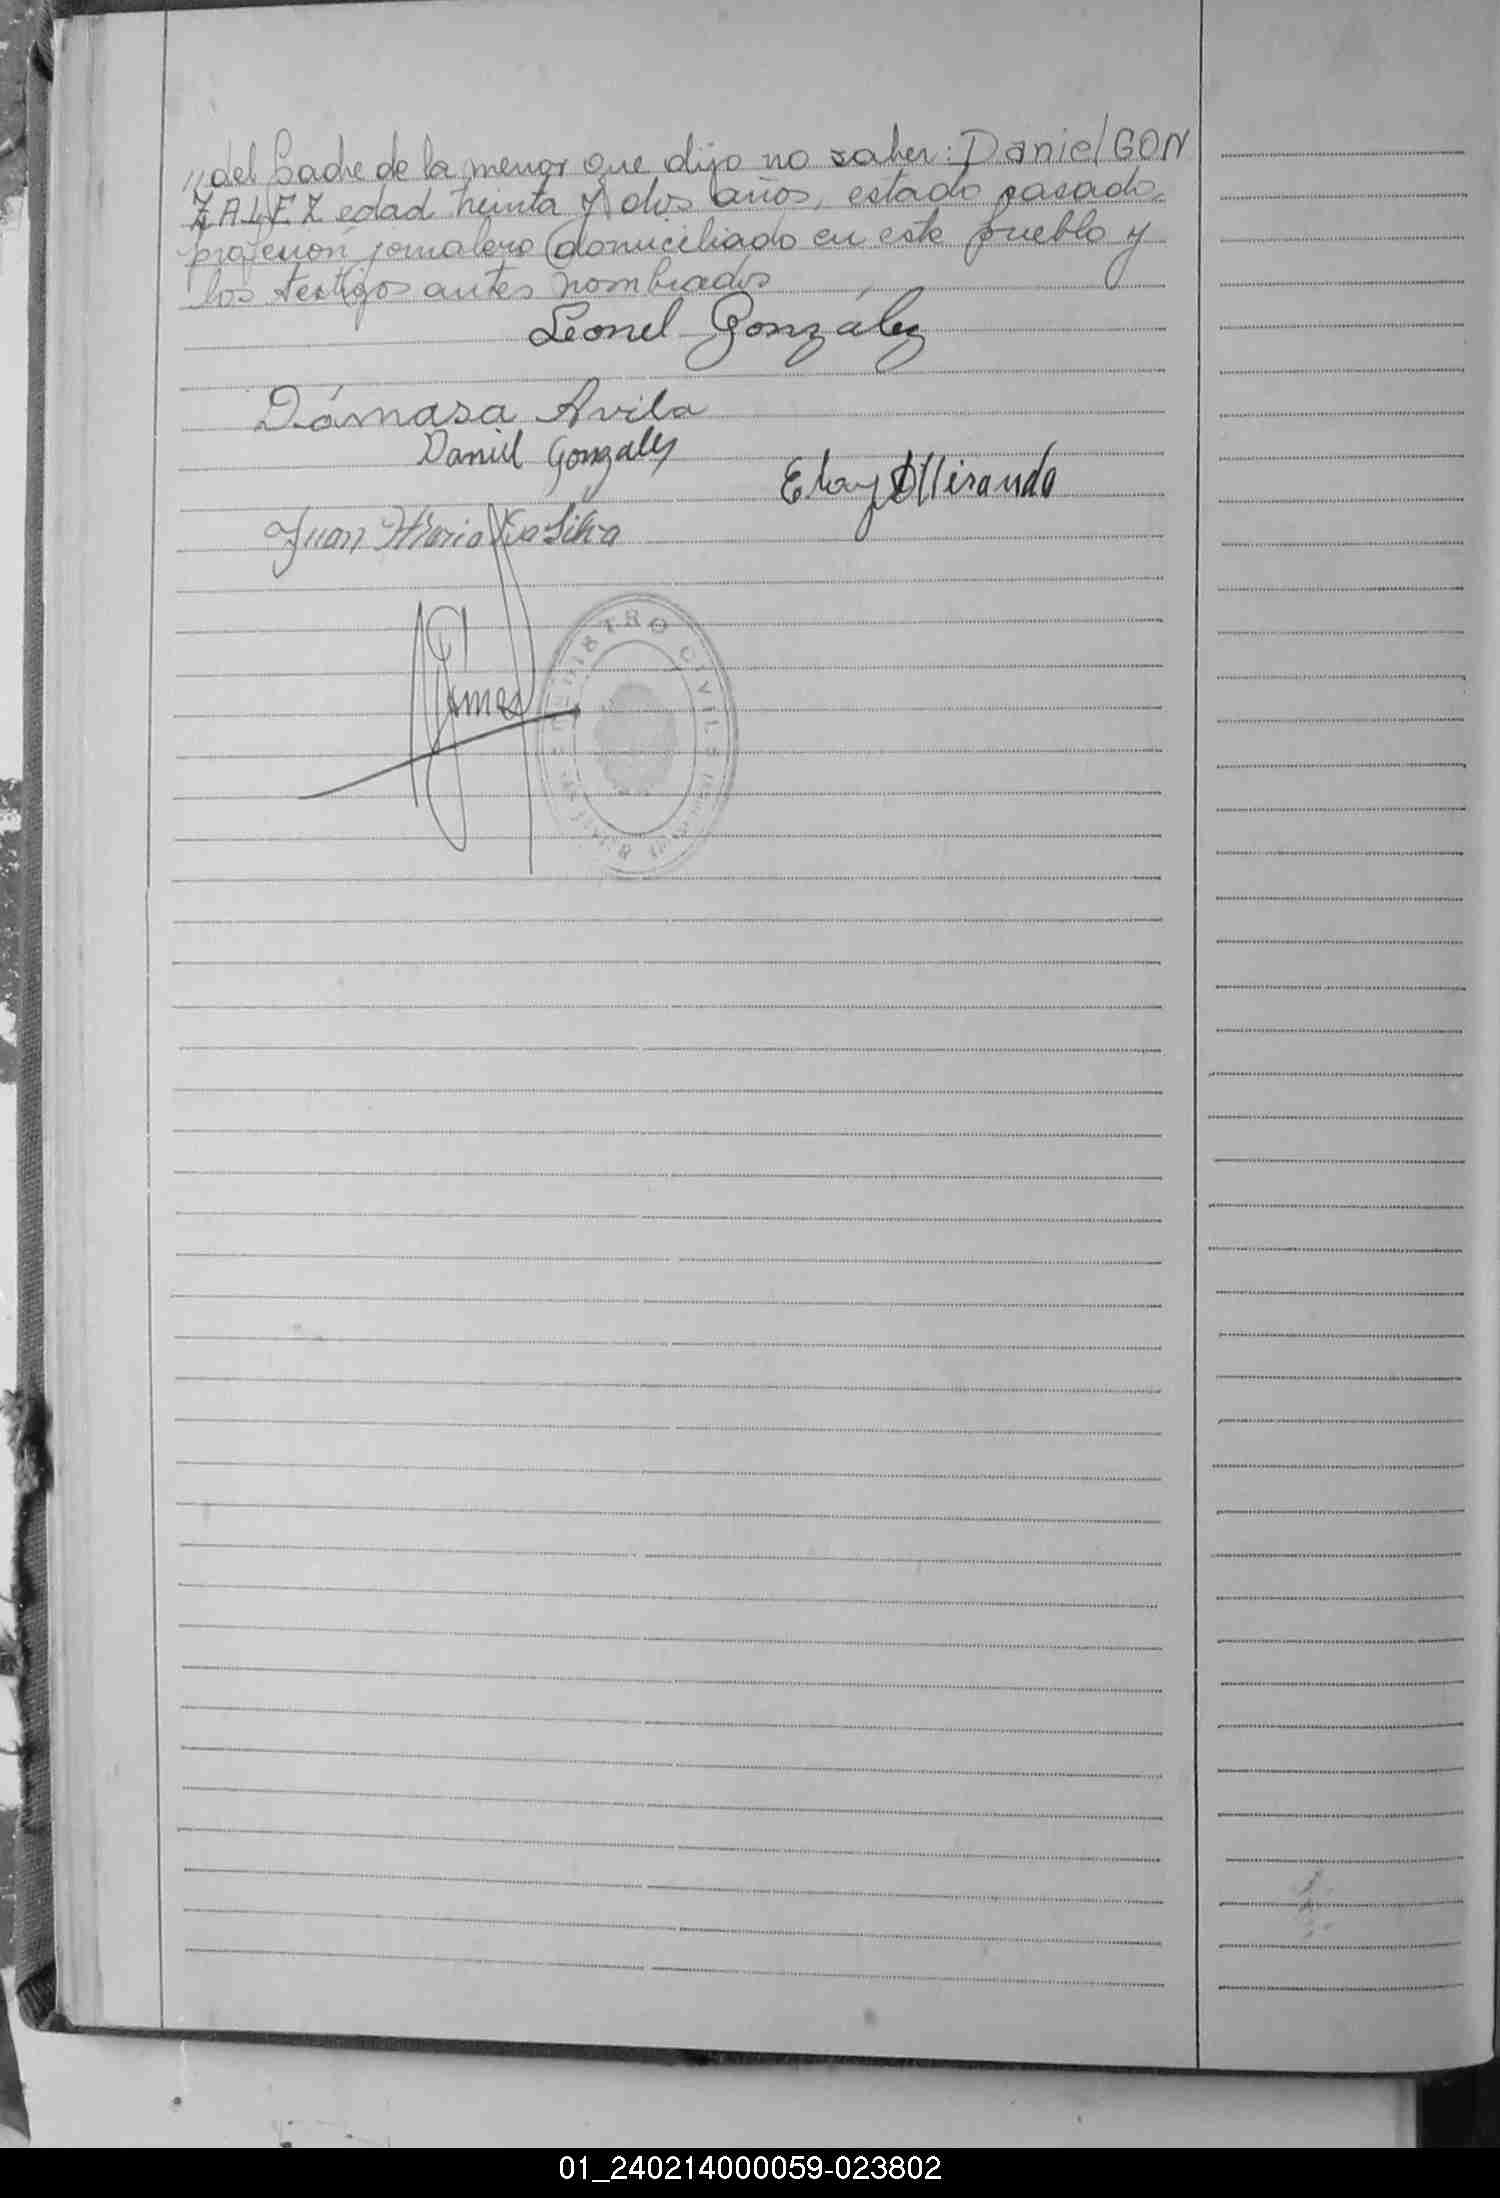 "del Padre de la menor que dijo no saber: Daniel GON
ZALEZ edad treinta y dos años, estado casado,
profesión jornalero domiciliado en este pueblo y
los testigos antes nombrados
Leonel González
Dámasa Avila
Daniel Gonzalez
Eloy Miranda
Juan Maria Da Silva
REGISTRO CIVIL
01_240214000059-023802